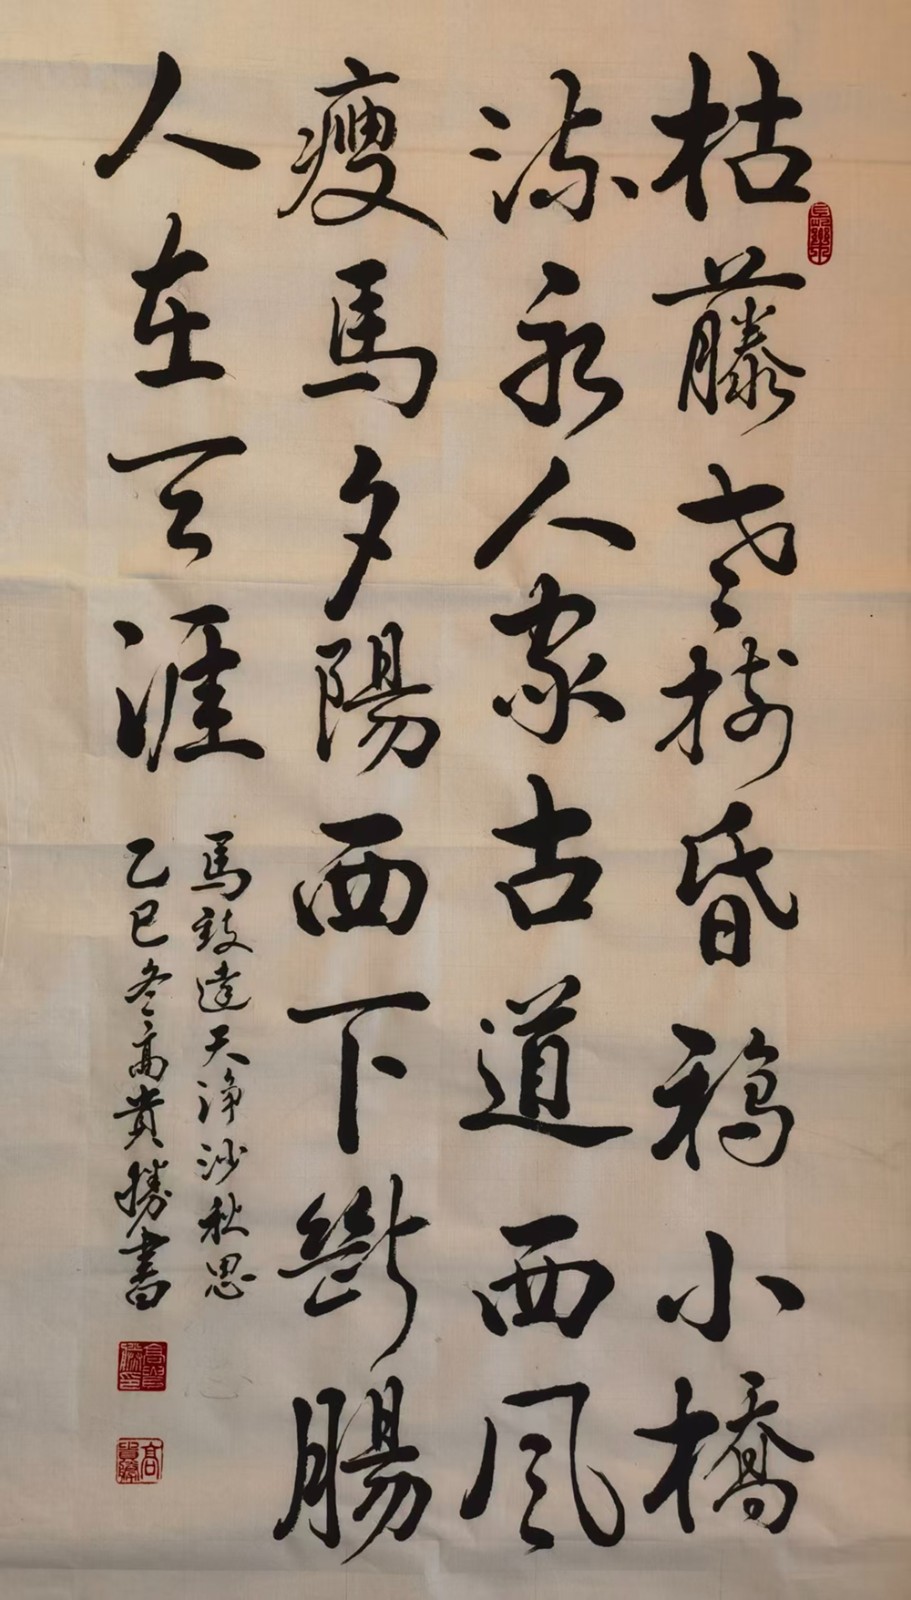 枯藤老樹昏鴉小橋
流永人家古道西風
瘦馬夕陽西下斷腸
人在天涯
馬致遠天淨沙秋思
乙巳冬高貴勝書
高貴勝印
高貴勝